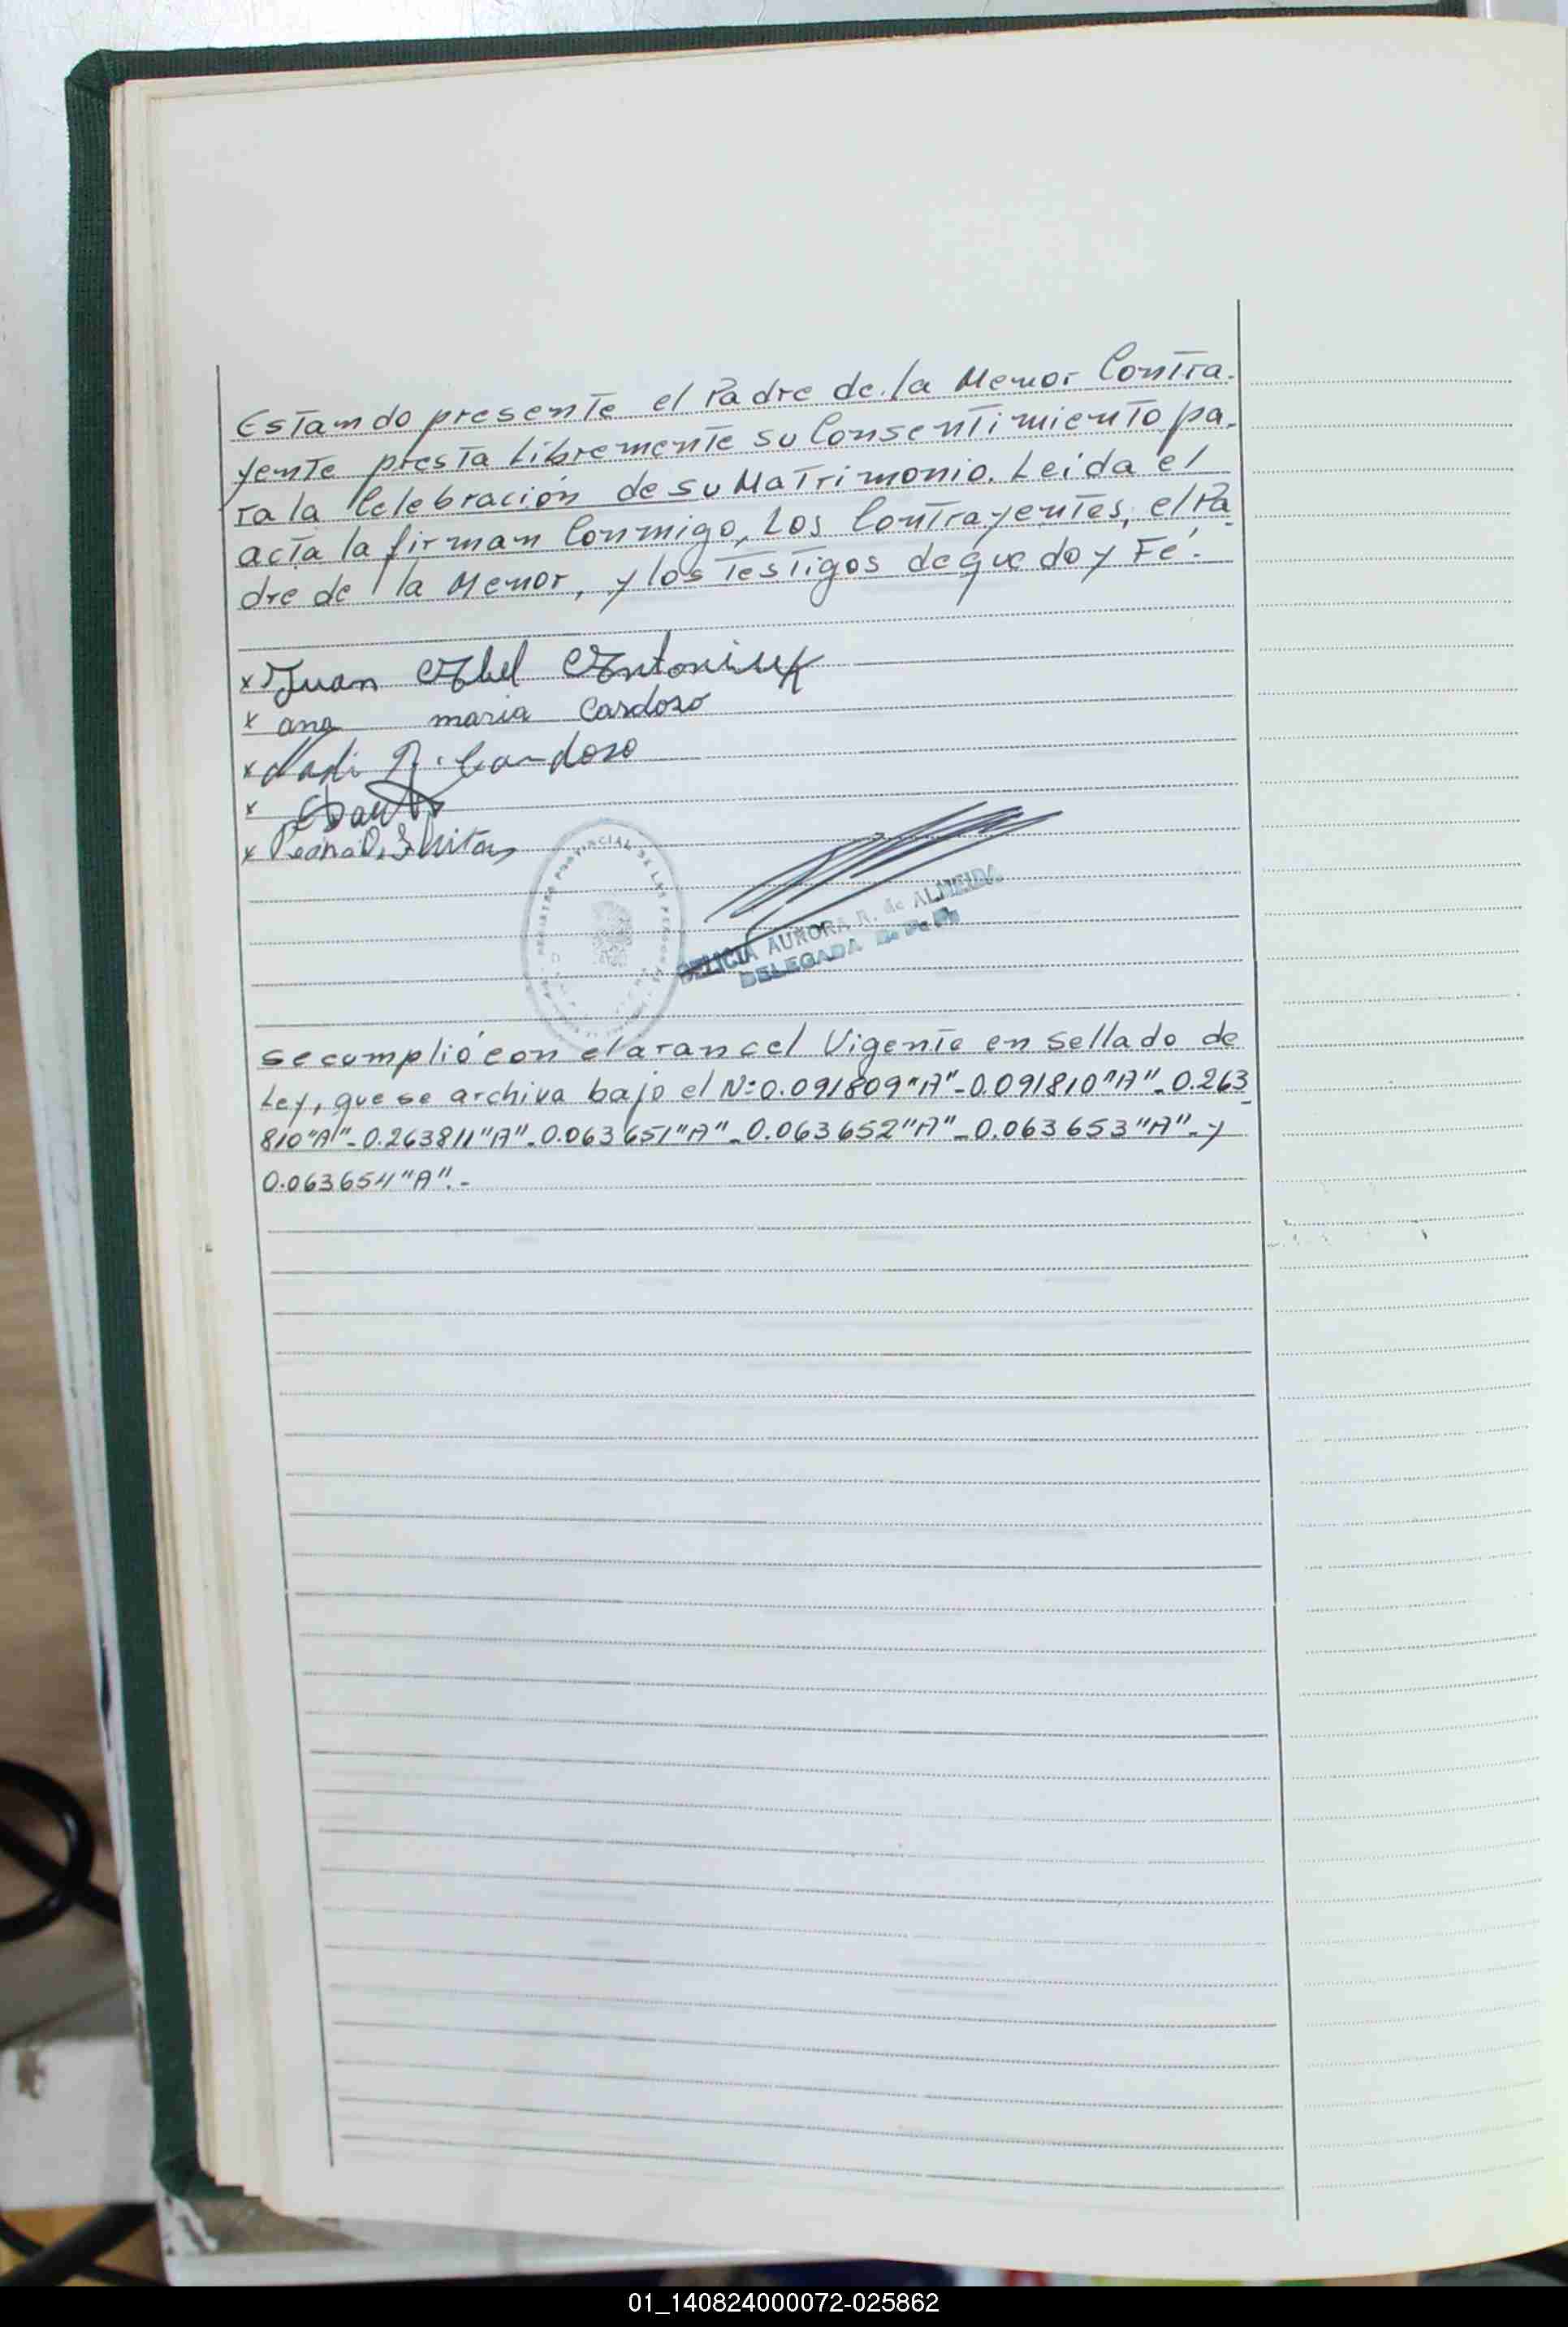 Estando presente el Padre de la Menor Contra-
yente presta Libremente su Consentimiento pa-
ra la Celebración de su Matrimonio. Leida el
acta la firman Conmigo, Los Contrayentes, el Pa-
dre de la Menor, y los Testigos de que doy Fé.-
x Juan Abel Antoniuk
x ana maria Cardoso
x Cardoso
x
x
REGISTRO PROVINCIAL DE LAS PERSONAS
DELICIA AURORA R. de ALMEIDA
DELEGADA R. P. P.
Se cumplió con el arancel Vigente en Sellado de
Ley, que se archiva bajo el Nº 0.091809"A"-0.091810"A"-0.263
810"A"-0.263811"A"-0.063651"A"-0.063652"A"-0.063653"A"-y
0.063654"A".-
01_140824000072-025862